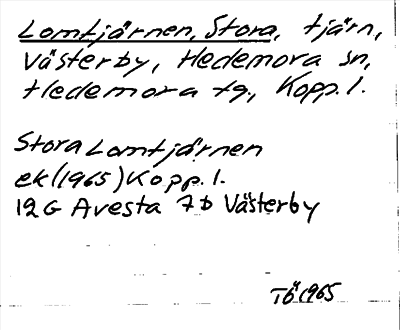 Lomtjärnen, Stora, tjärn,
Västerby, Hedemora sn,
Hedemora tg, Kopp. l.
Stora Lomtjärnen
ek (1965) Kopp. l.
12G Avesta 7b Västerby
TÖ 1965